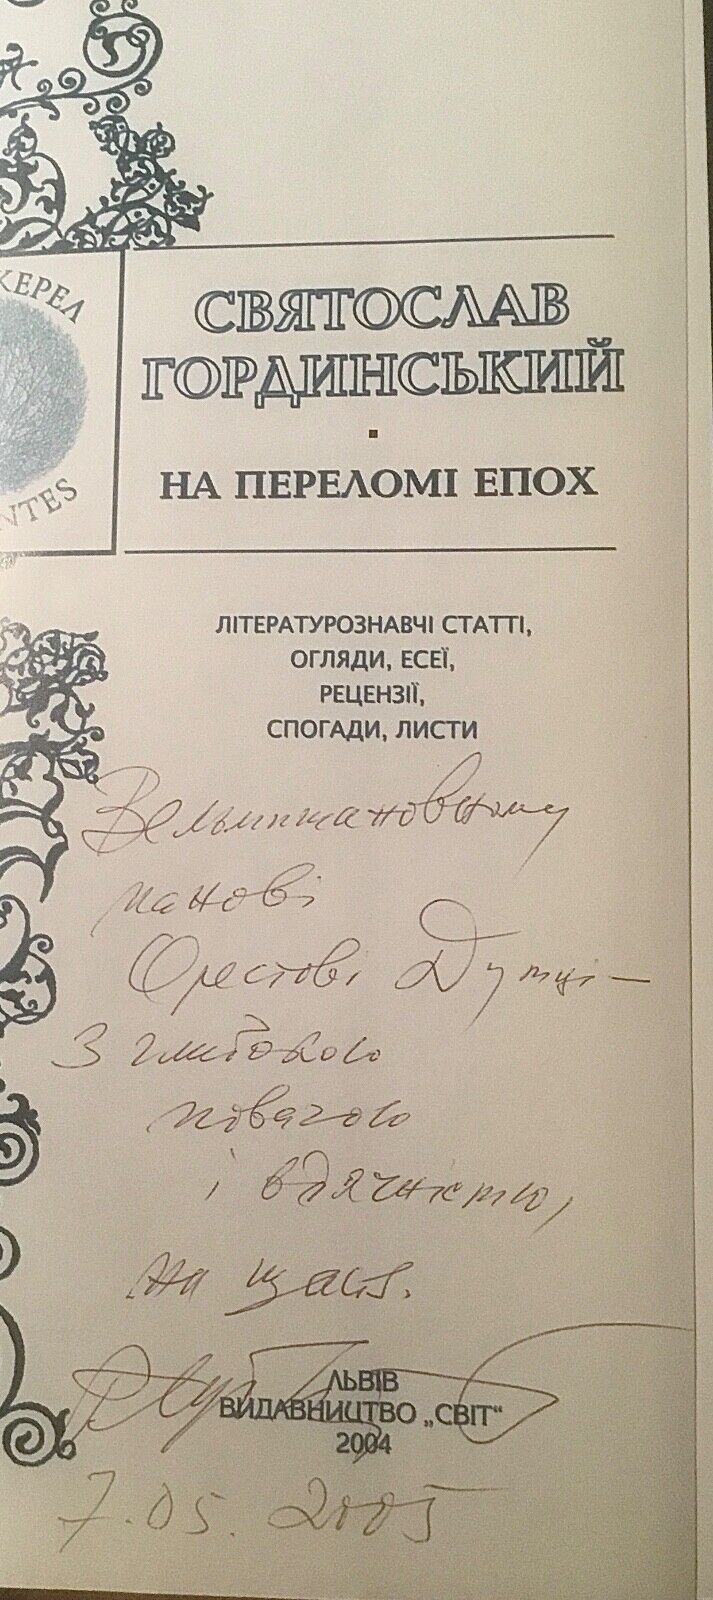 СВЯТОСЛАВ
ГОРДИНСЬКИЙ
НА ПЕРЕЛОМІ ЕПОХ
ЖЕРЕЛ
NTES
ЛІТЕРАТУРОЗНАВЧІ СТАТТІ,
ОГЛЯДИ, ЕСЕЇ,
РЕЦЕНЗІЇ,
СПОГАДИ, ЛИСТИ
Вельмишановному
панові
Орестові –
З глибокою
повагою
і вдячністю,
на щастя.
ЛЬВІВ
ВИДАВНИЦТВО „СВІТ“
2004
7.05.2005